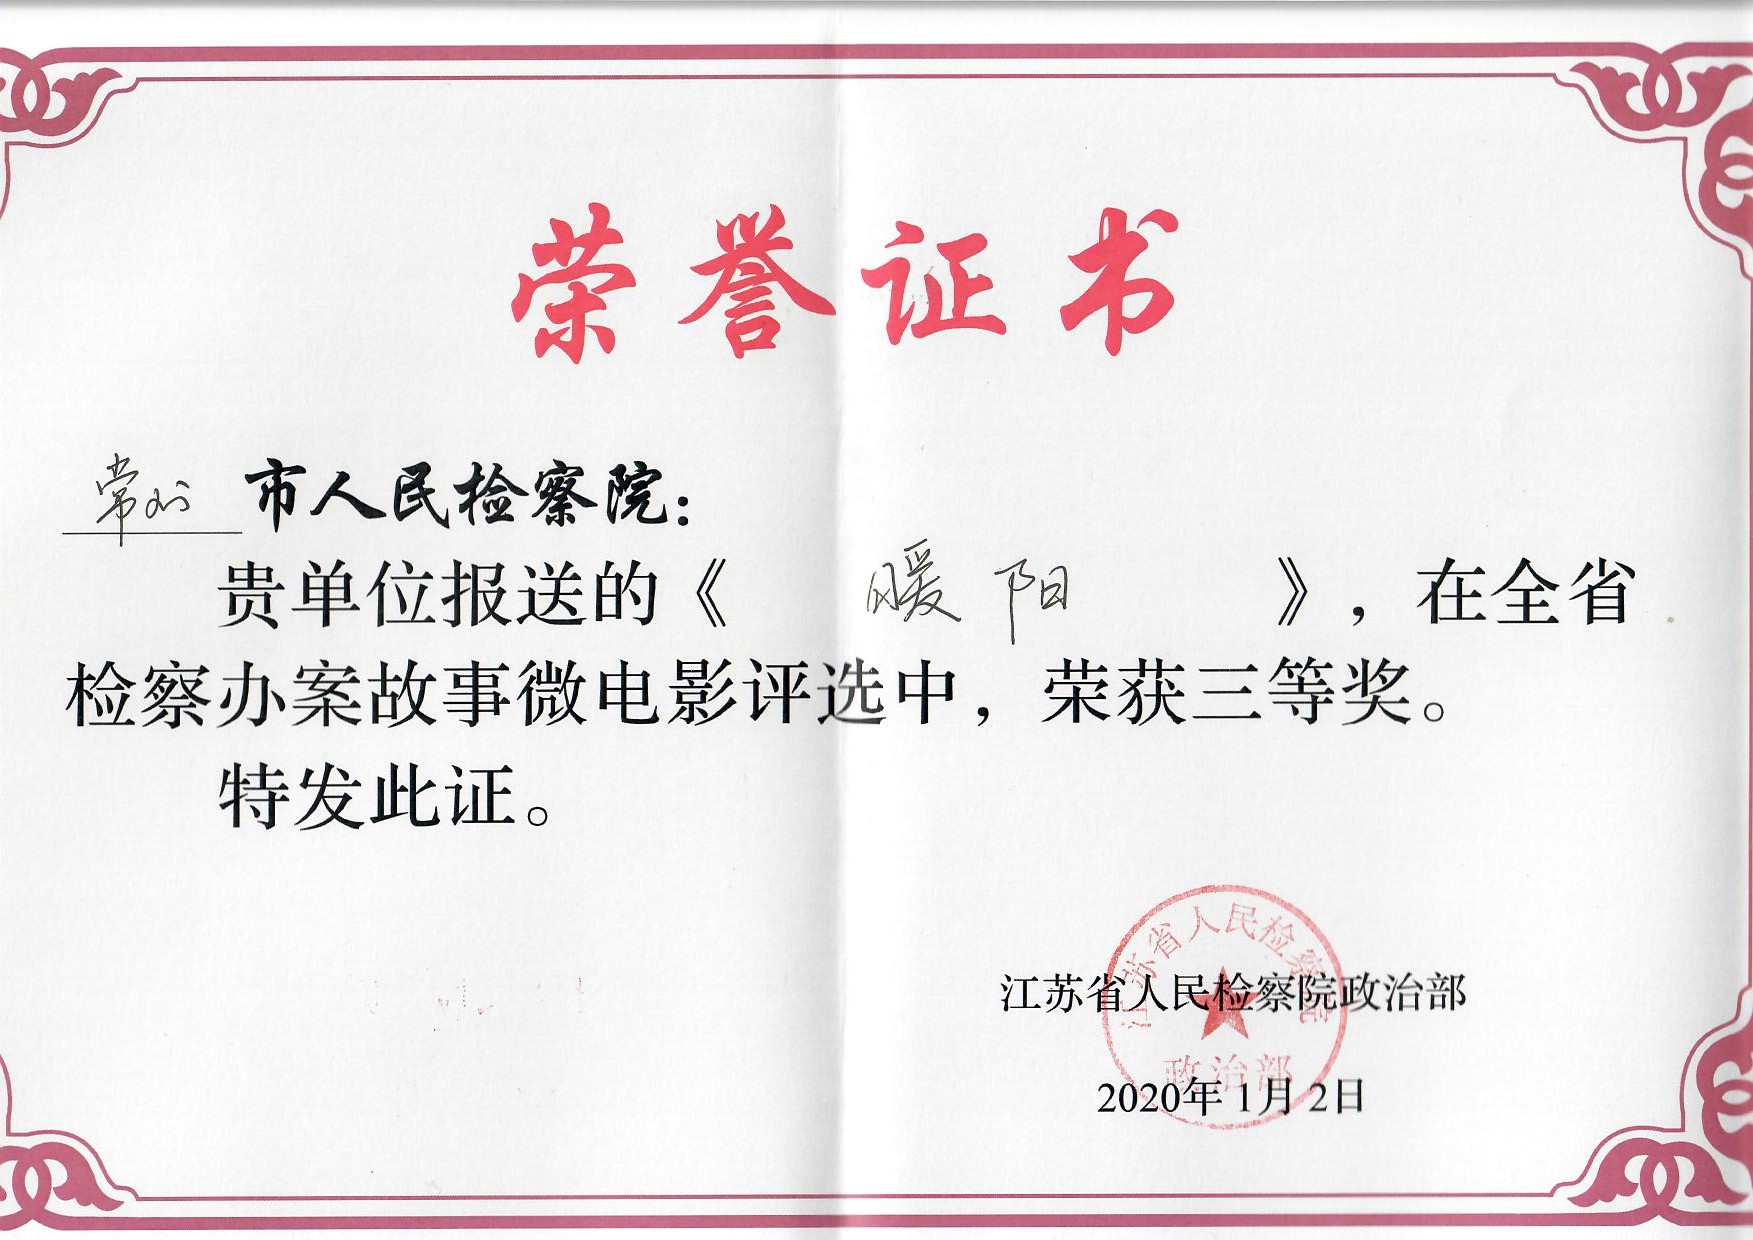 荣誉证书
常州市人民检察院：
贵单位报送的《暖阳》，在全省
检察办案故事微电影评选中，荣获三等奖。
特发此证。
江苏省人民检察院
政治部
江苏省人民检察院政治部
2020年1月2日